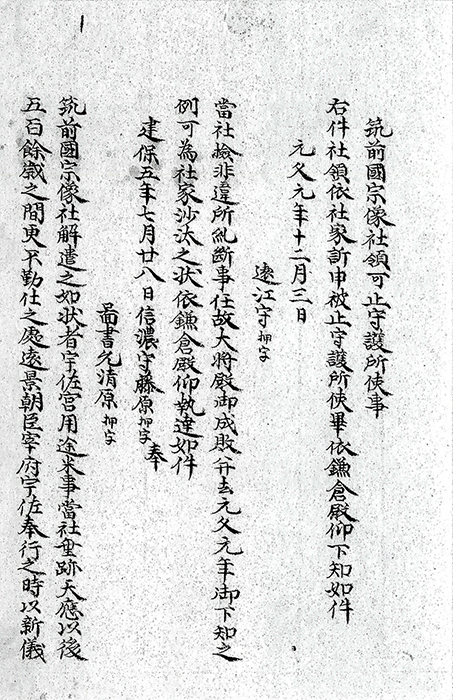 筑前國宗像社領可止守護所使事
右件社領依社家訴申被止守護所使畢依鎌倉殿仰下知如件
元久元年十二月三日
遠江守押字
當社檢非違所糺断事任故大將殿御成敗并去元久元年御下知之
例可為社家沙汰之状依鎌倉殿仰執達如件
建保五年七月廿八日信濃守藤原押字奉
圖書允清原押字
筑前國宗像社解遣之如状者宇佐宮用途米事當社垂跡天應以後
五百餘歳之間更不勤仕之處遠景朝臣宰府宇佐奉行之時以新儀